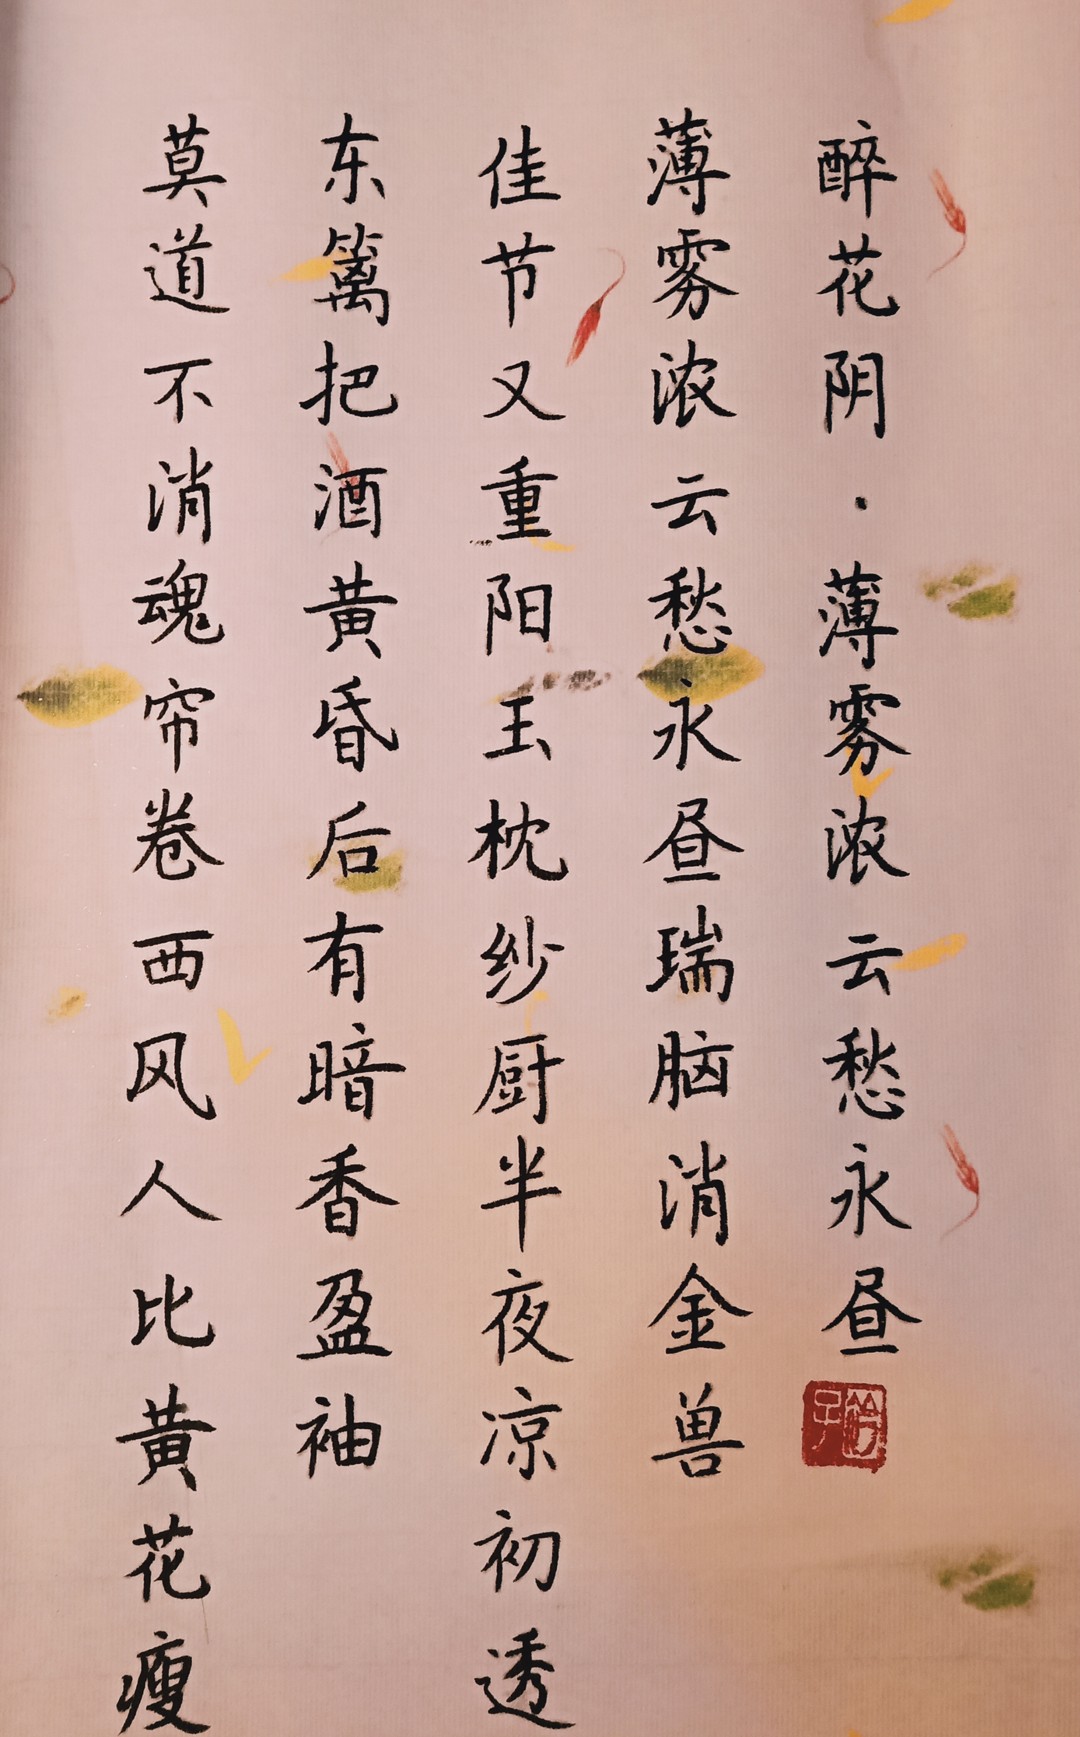 醉花阴·薄雾浓云愁永昼
薄雾浓云愁永昼瑞脑消金兽
佳节又重阳玉枕纱厨半夜凉初透
东篱把酒黄昏后有暗香盈袖
莫道不消魂帘卷西风人比黄花瘦